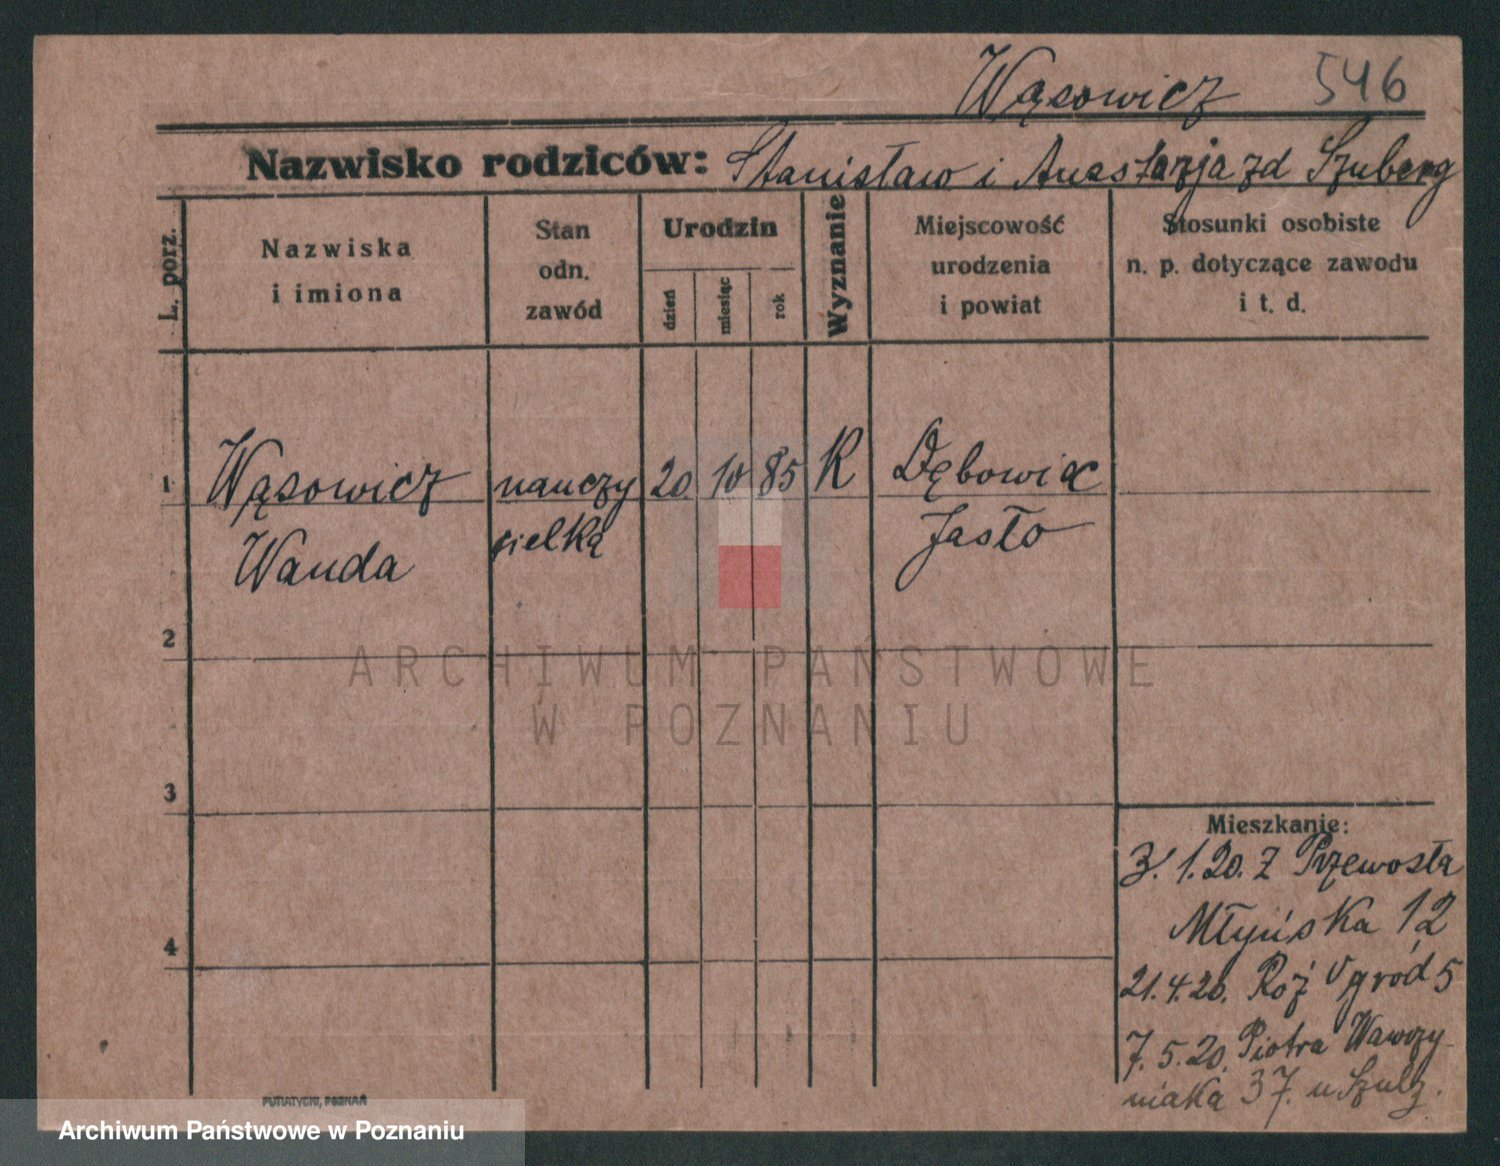 Wąsowicz 546
Nazwisko rodziców: Stanisław i Anastazja zd Szuberg
L. porz.
Nazwiska
i imiona
Stan
odn.
zawód
Urodzin
dzień
miesiąc
rok
Wyznanie
Miejscowość
urodzenia
i powiat
Stosunki osobiste
n. p. dotyczące zawodu
i t. d.
1 Wąsowicz nauczy 20 10 85 R Dębowiec
Wanda cielką Jasło
2
3
4
Mieszkanie:
3. 1. 20. Z
Młyńska 12
21. 4. 20. gród 5
7. 5. 20. Piotra Wawrzy
niaka 37. u Szulz.
PUTIATYCKI, POZNAŃ
ARCHIWUM PAŃSTWOWE
W POZNANIU
Archiwum Państwowe w Poznaniu